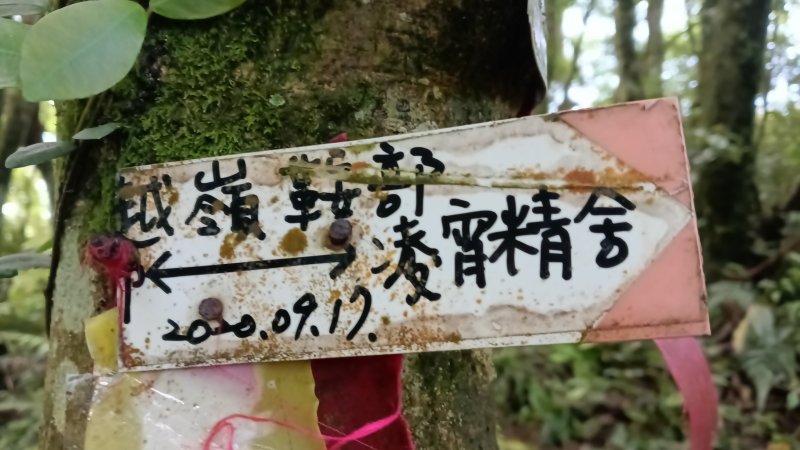 越嶺鞍部
凌宵精舍
2020.09.17.